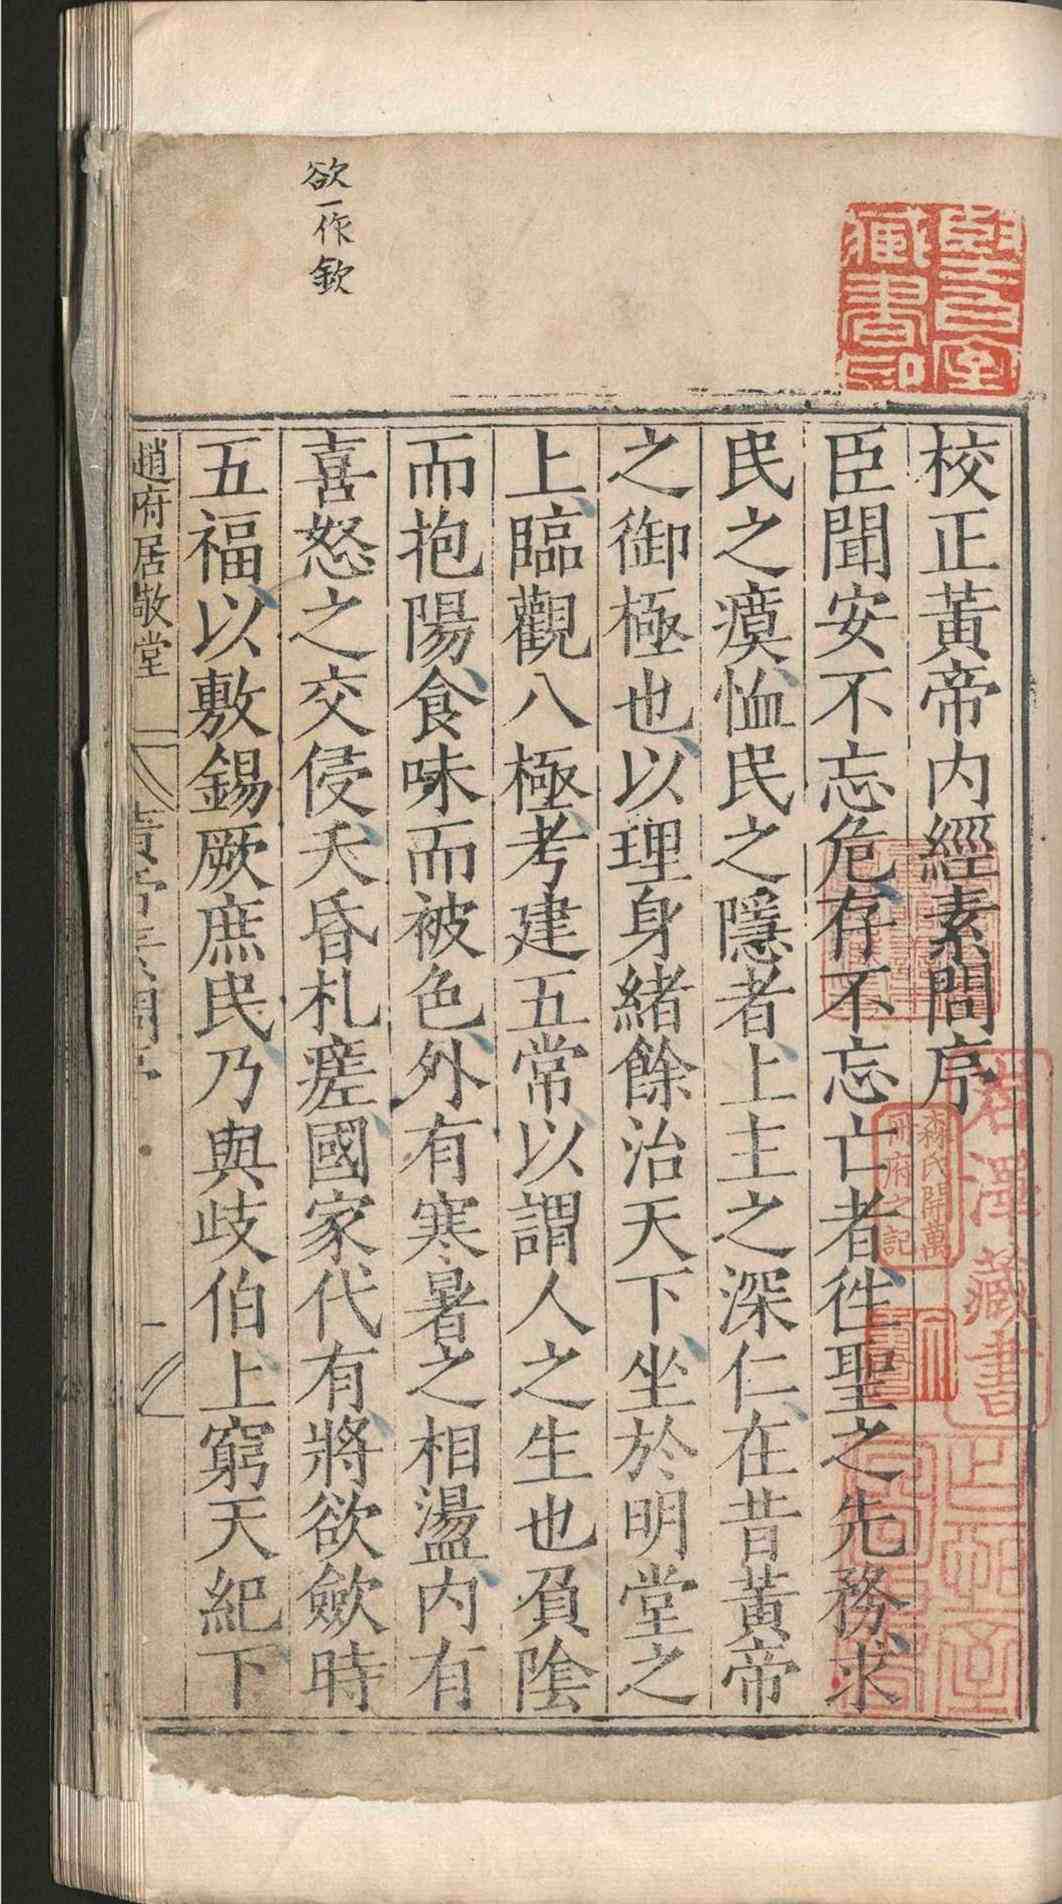 校正黃帝内經素問序
臣聞安不忘危存不忘亡者徃聖之先務求
民之瘼恤民之隱者上主之深仁在昔黃帝
之御極也以理身緒餘治天下坐於明堂之
上臨觀八極考建五常以謂人之生也負陰
而抱陽食味而被色外有寒暑之相盪内有
喜怒之交侵夭昏札瘥國家代有將欲斂時
五福以敷錫厥庶民乃與歧伯上窮天紀下
趙府居敬堂
欲一作欽
藏書印
森氏開萬冊府之記